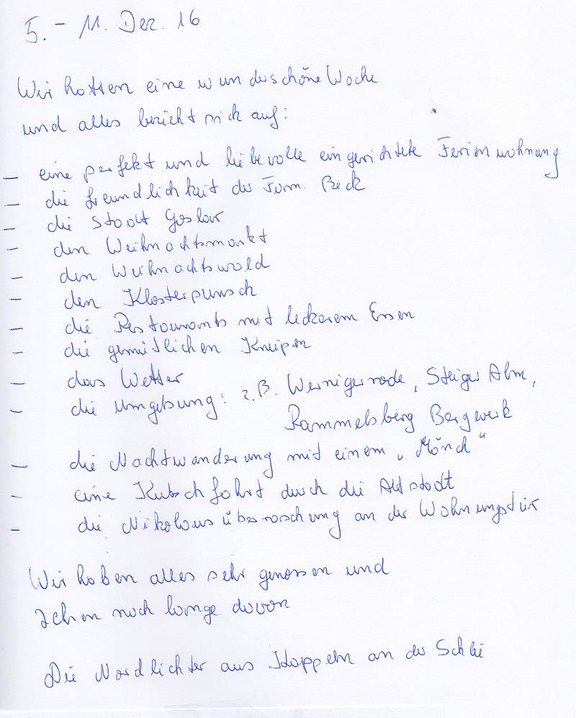 5. - 11. Dez. 16
Wir hatten eine wunderschöne Woche
und alles bezieht sich auf:
- eine perfekt und liebevolle eingerichtete Ferienwohnung
- die Freundlichkeit der Fam. Beck
- die Stadt Goslar
- den Weihnachtsmarkt
- den Weihnachtswald
- den Klosterpunsch
- die Restaurants mit leckerem Essen
- die gemütlichen Kneipen
- das Wetter
- die Umgebung: z.B. Wernigerode, Steiger Alm,
Rammelsberg Bergwerk
- die Nachtwanderung mit einem „Mönch“
- eine Kutschfahrt durch die Altstadt
- die Nikolausüberraschung an der Wohnungstür
Wir haben alles sehr genossen und
zehren noch lange davon
Die Nordlichter aus Kappeln an der Schlei